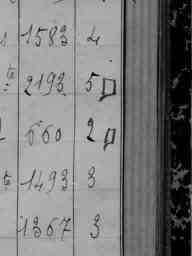 1583 4
2193 5
660 2
1493 3
1367 3